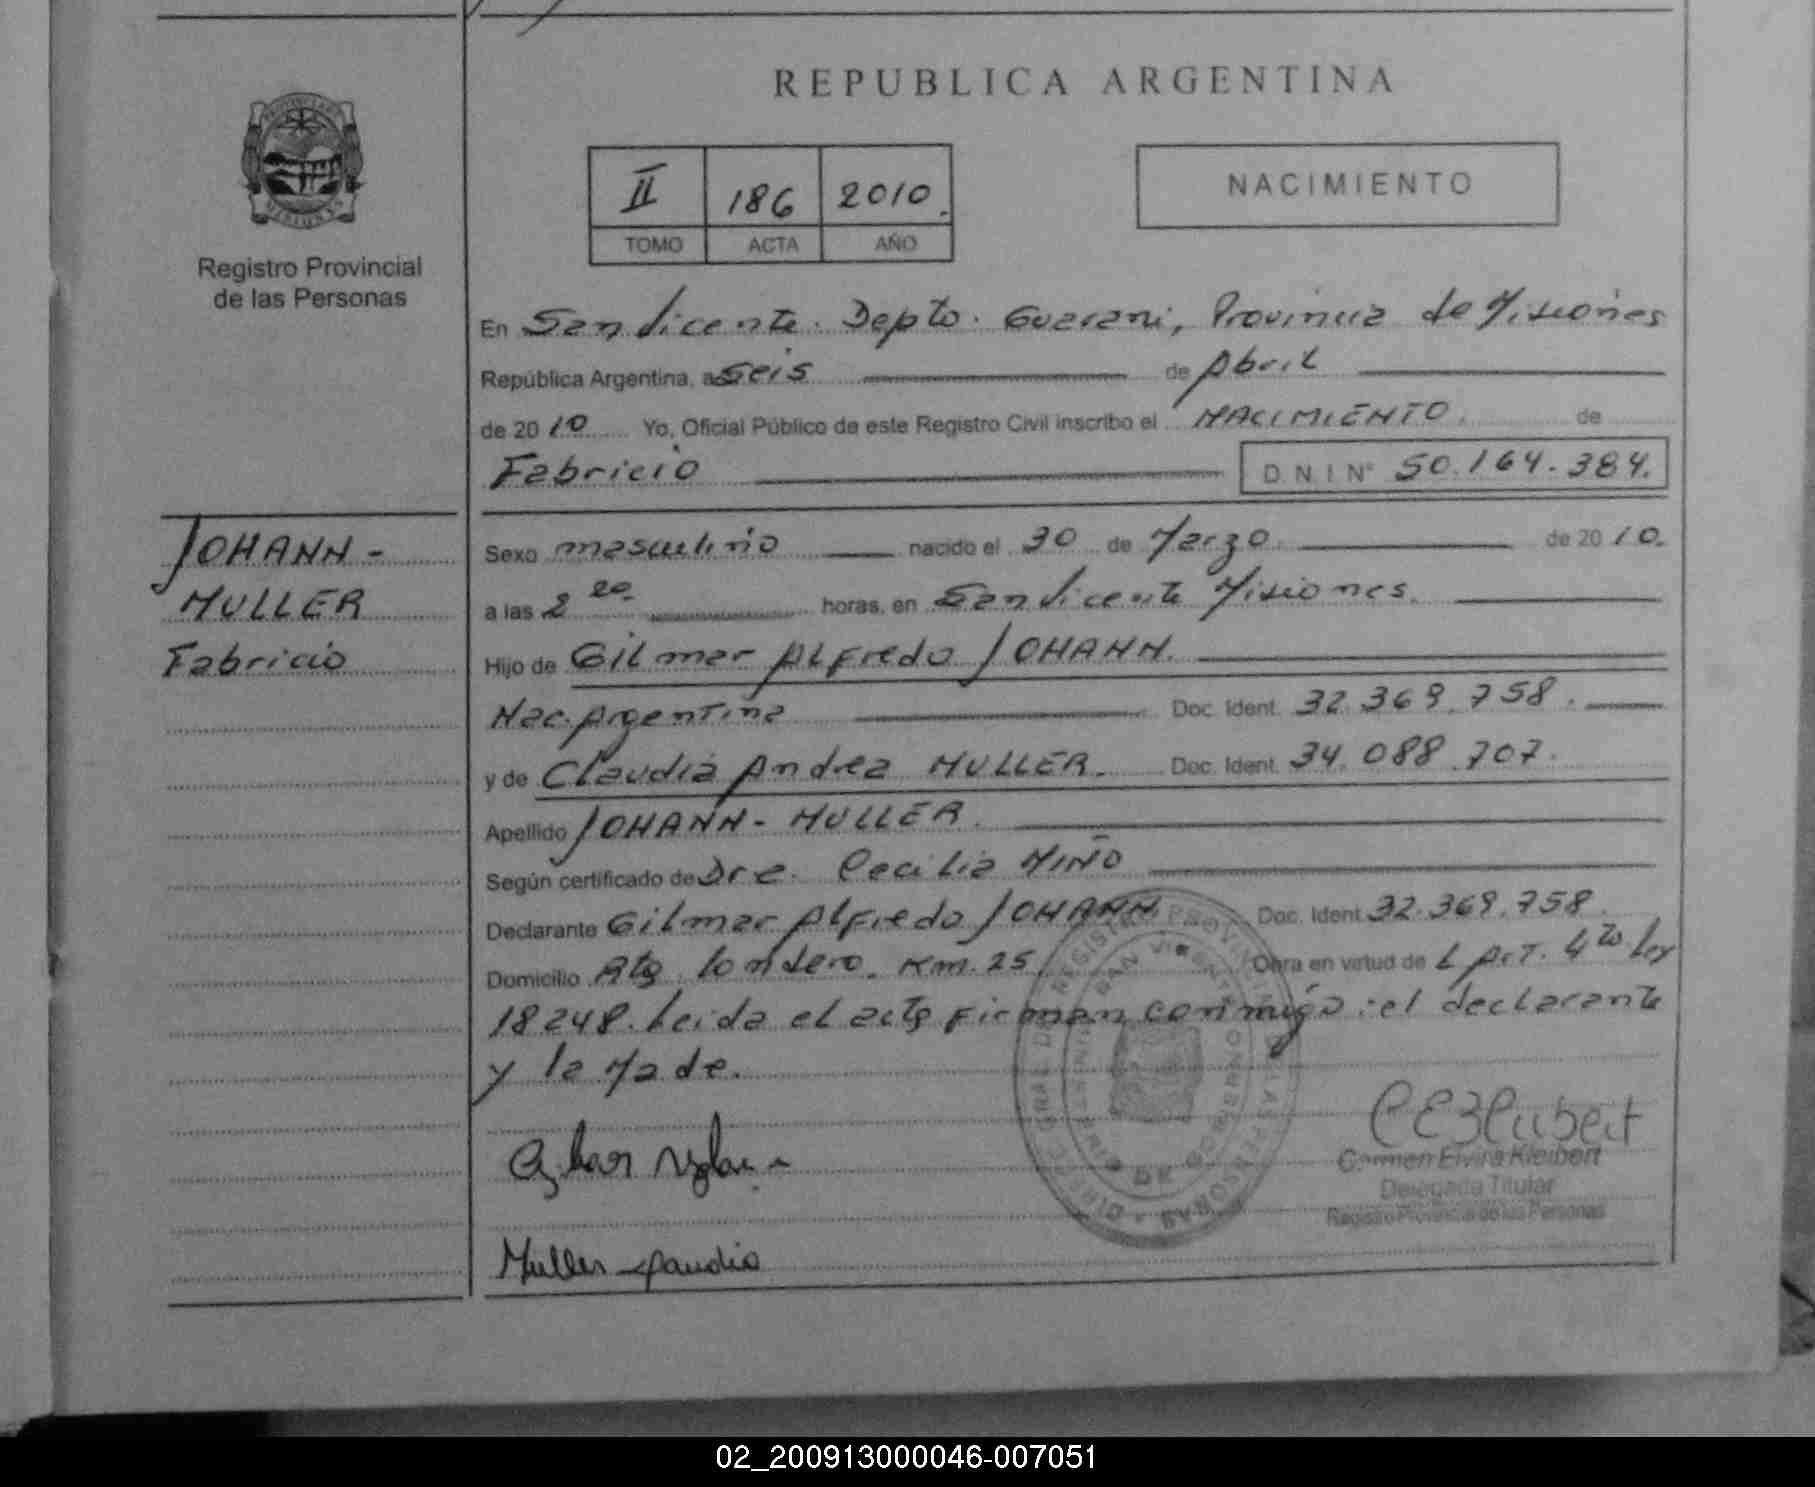 REPUBLICA ARGENTINA
II 186 2010.
TOMO ACTA AÑO
NACIMIENTO
Registro Provincial
de las Personas
En San Vicente. Depto. Guarani, Provincia de Misiones
República Argentina, a seis de Abril
de 2010 Yo, Oficial Público de este Registro Civil inscribo el NACIMIENTO. de
Fabricio D.N.I Nº 50.164.384.
JOHANN-
MULLER
Fabricio
Sexo masculino nacido el 30 de Marzo. de 2010.
a las 2 20. horas, en San Vicente Misiones.
Hijo de Gilmar Alfredo JOHANN.
Nac. Argentina Doc. Ident. 32.369.758.
y de Claudia Andrea MULLER. Doc. Ident. 34.088.707.
Apellido JOHANN-MULLER.
Según certificado de Dra. Cecilia MIÑO
Declarante Gilmar Alfredo JOHANN Doc. Ident. 32.369.758.
Domicilio Km. 25 Obra en virtud de L Art. 4to Ley
18248. Leida el acta firman conmigo: el declarante
y la Made.
Carmen Elvira Kleibert
Delegada Titular
Registro Provincial de las Personas
Muller Claudia
02_200913000046-007051